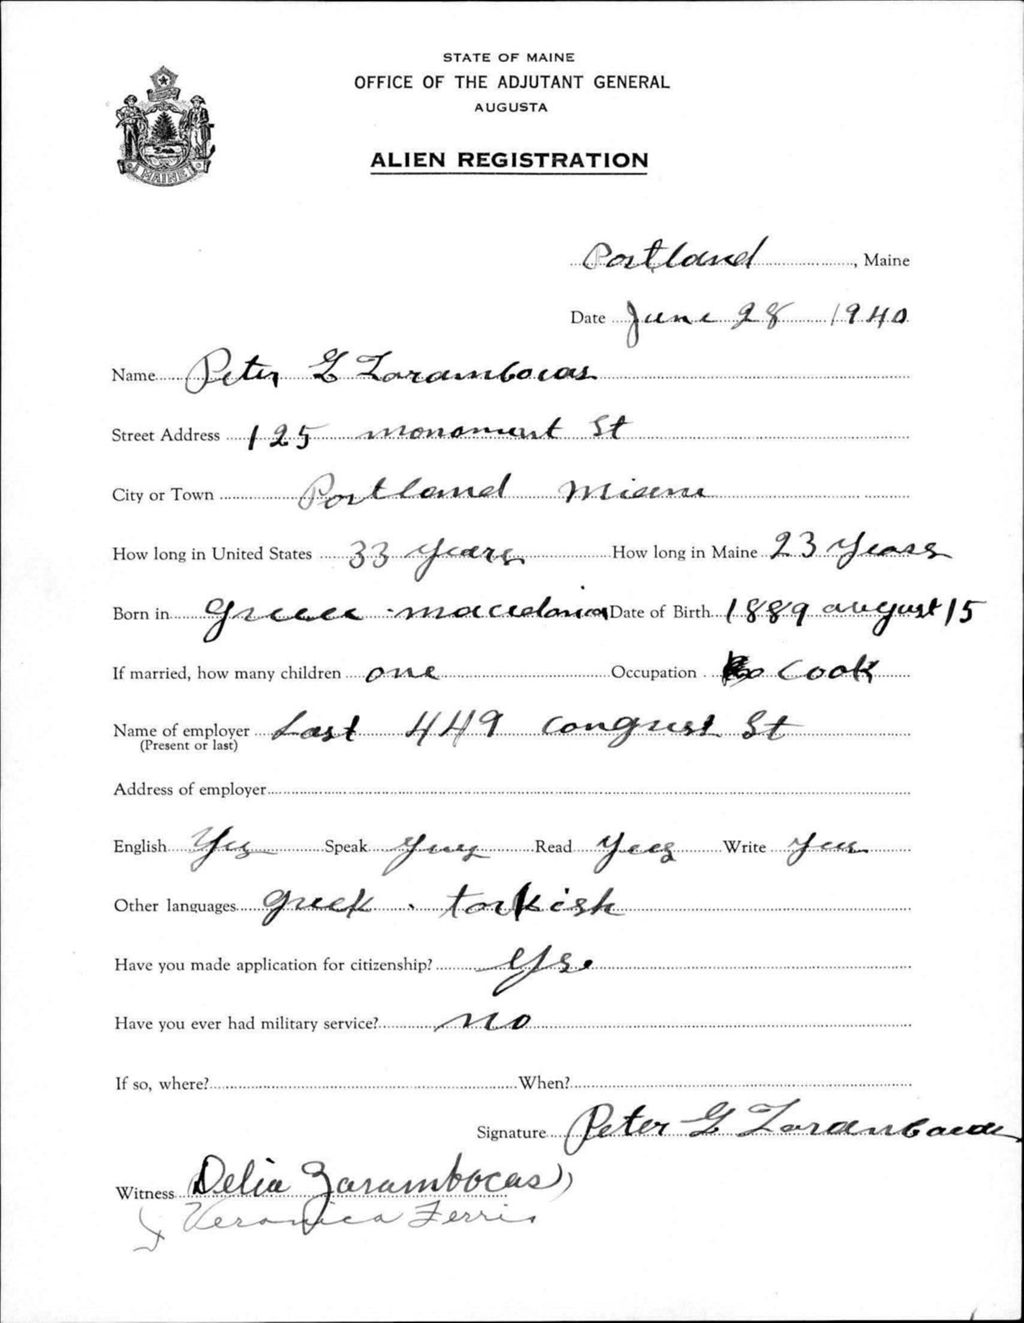 STATE OF MAINE
OFFICE OF THE ADJUTANT GENERAL
AUGUSTA
ALIEN REGISTRATION
MAINE
Portland, Maine
Date June 28 1940
Name Peter G Zarambocas
Street Address 125 monoment St
City or Town Portland Miane
How long in United States 33 years How long in Maine 23 Years
Born in Greece macedonia Date of Birth 1889 august 15
If married, how many children one Occupation Cook
Name of employer Last 449 Congress St
(Present or last)
Address of employer
English Yes Speak Yes Read Yees Write Yes
Other languages greek . torkish
Have you made application for citizenship? Yes.
Have you ever had military service? no
If so, where? When?
Signature Peter G Zarambocas
Witness Delia Zarambocas
Veronica Ferris